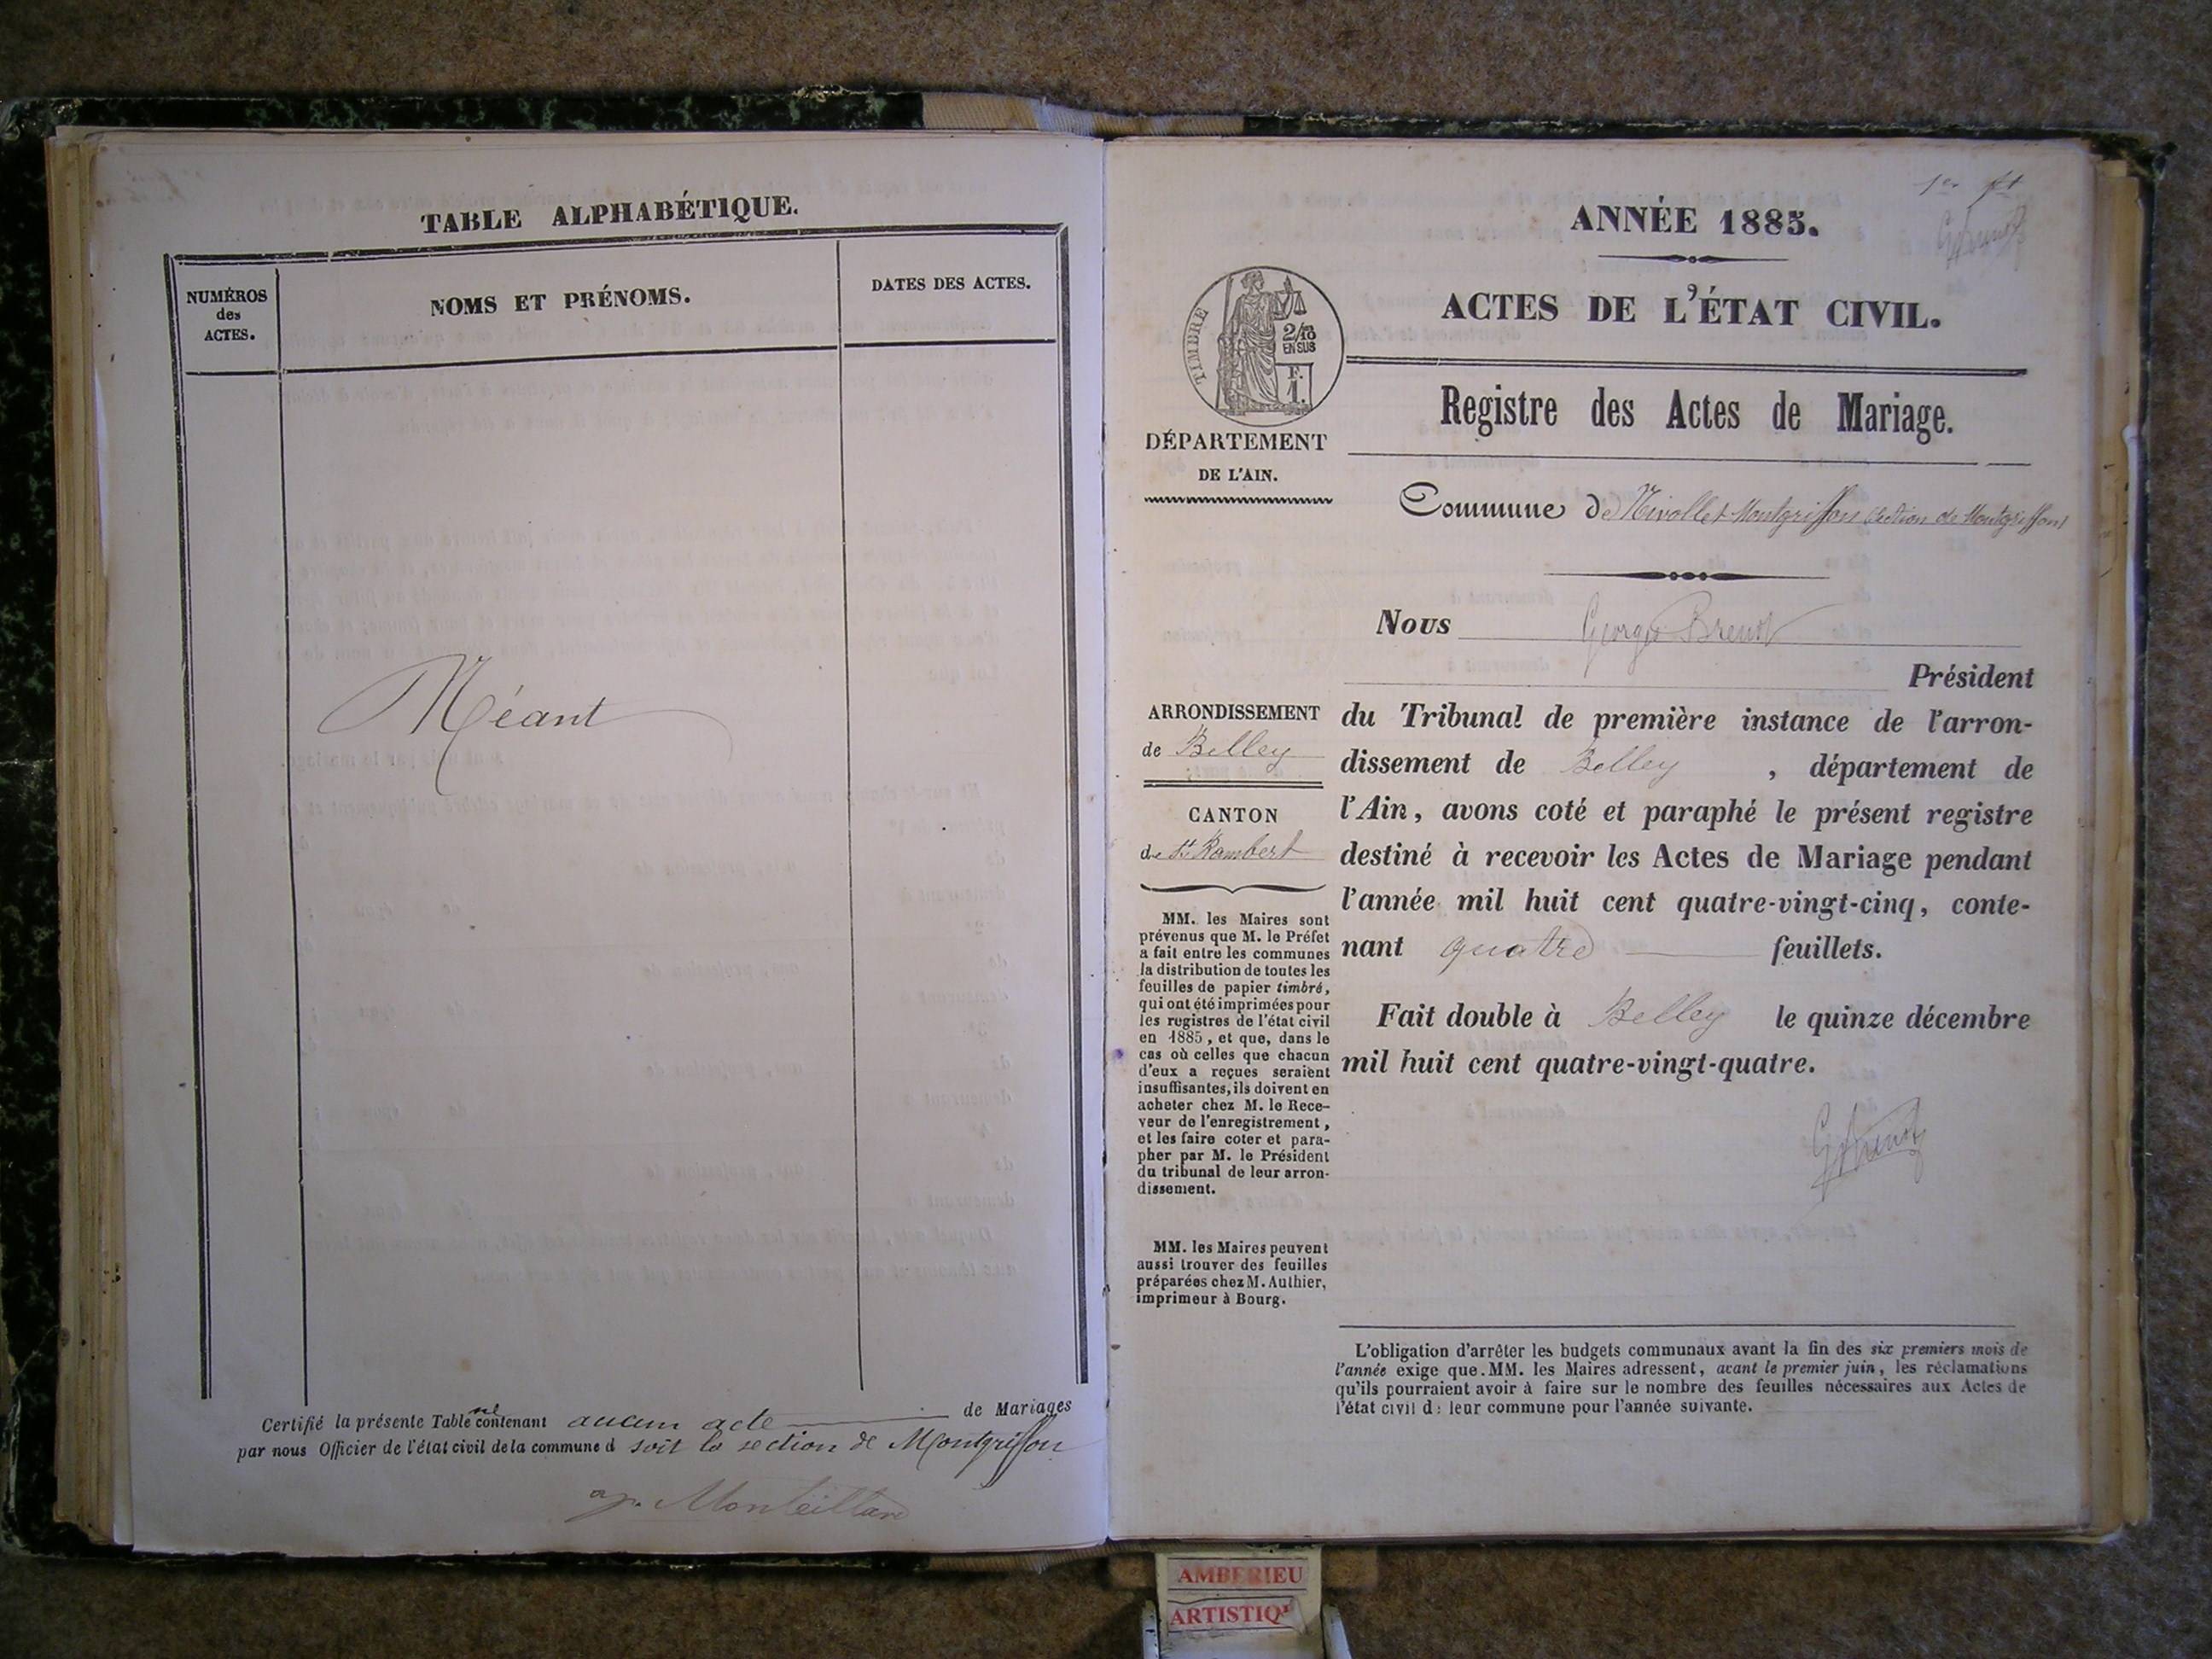 TABLE ALPHABÉTIQUE.
NUMÉROS
des
ACTES.
NOMS ET PRÉNOMS.
DATES DES ACTES.
Néant
Certifié la présente Table ne contenant aucun acte de Mariages
par nous Officier de l'état civil de la commune d soit la section de Montgriffon
Monteillard
1er ft
ANNÉE 1885.
ACTES DE L'ÉTAT CIVIL.
Registre des Actes de Mariage.
TIMBRE
2/10
EN SUS
F.
1.
DÉPARTEMENT
DE L'AIN.
Commune de Nivollet Montgriffon (Section de Montgriffon)
Nous Georges Brenot
Président
du Tribunal de première instance de l'arron-
dissement de Belley , département de
l'Ain, avons coté et paraphé le présent registre
destiné à recevoir les Actes de Mariage pendant
l'année mil huit cent quatre-vingt-cinq, conte-
nant quatre feuillets.
Fait double à Belley le quinze décembre
mil huit cent quatre-vingt-quatre.
ARRONDISSEMENT
de Belley
CANTON
de St Rambert
MM. les Maires sont
prévenus que M. le Préfet
a fait entre les communes
la distribution de toutes les
feuilles de papier timbré,
qui ont été imprimées pour
les registres de l'état civil
en 1885, et que, dans le
cas où celles que chacun
d'eux a reçues seraient
insuffisantes, ils doivent en
acheter chez M. le Rece-
veur de l'enregistrement,
et les faire coter et para-
pher par M. le Président
du tribunal de leur arron-
dissement.
MM. les Maires peuvent
aussi trouver des feuilles
préparées chez M. Authier,
imprimeur à Bourg.
L'obligation d'arrêter les budgets communaux avant la fin des six premiers mois de
l'année exige que MM. les Maires adressent, avant le premier juin, les réclamations
qu'ils pourraient avoir à faire sur le nombre des feuilles nécessaires aux Actes de
l'état civil de leur commune pour l'année suivante.
AMBERIEU
ARTISTIQ